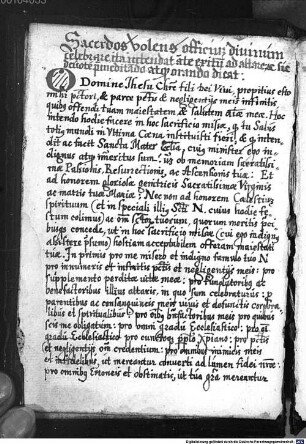 Sacerdos volens officium divinum
celebrare ita intendat ante exitum ad altare
devote meditando atque orando dicat:
O Domine Jhesu Chre fili dei Vivi, propitius esto
mihi pctori, & parce pctis & negligentijs meis infinitis
quibus offendi tuam maiestatem & salutem animae meae. Hoc
intendo hodie facere in hoc sacrificio missae, q tu Salus
totius mundi in Ultima Coena instituisti fieri, & q inten
dit ac facit Sancta Mater Ecclia, cuius minister ego in
dignus atque immeritus sum: ob memoriam sacratissi
mae Passionis, Resurrectionis, ac Ascensionis tuae: Et
ad honorem gloriosae genitricis Sacratissimae Virginis
ac matris tuae Mariae: Nec non ad honorem Caelestium
spirituum (et in speciali illius Scti N. cuius hodie fe
stum colimus) ac omnium sctorum tuorum, quorum meritis preci
busque concede, ut in hoc sacrificio missae (cui ego indignus
assistere) hostiam acceptabilem offeram maiestati
tuae. In primis pro me misero et indigno famulo tuo N
pro innumeris et infinitis pctis et negligentijs meis: pro
supplemento perditae vitae meae: pro fundatoribus ac
benefactoribus illius altaris, in quo sum celebraturus: pro
parentibus ac consanguineis meis vivis et defunctis
libus et spiritualibus: pro oibus benefactoribus meis pro quibus
scis me obligatum: pro omni gradu Ecclesiastico:
gradu Ecclesiastico pro cuncto pplo Xpiano: pro pctis
et negligentijs omnium credentium: pro omnibus inimicis meis
et infidelibus, ut mereantur converti ad lumen fidei
pro omnibus Erroneis et obstinatis, ut tua gra mereantur